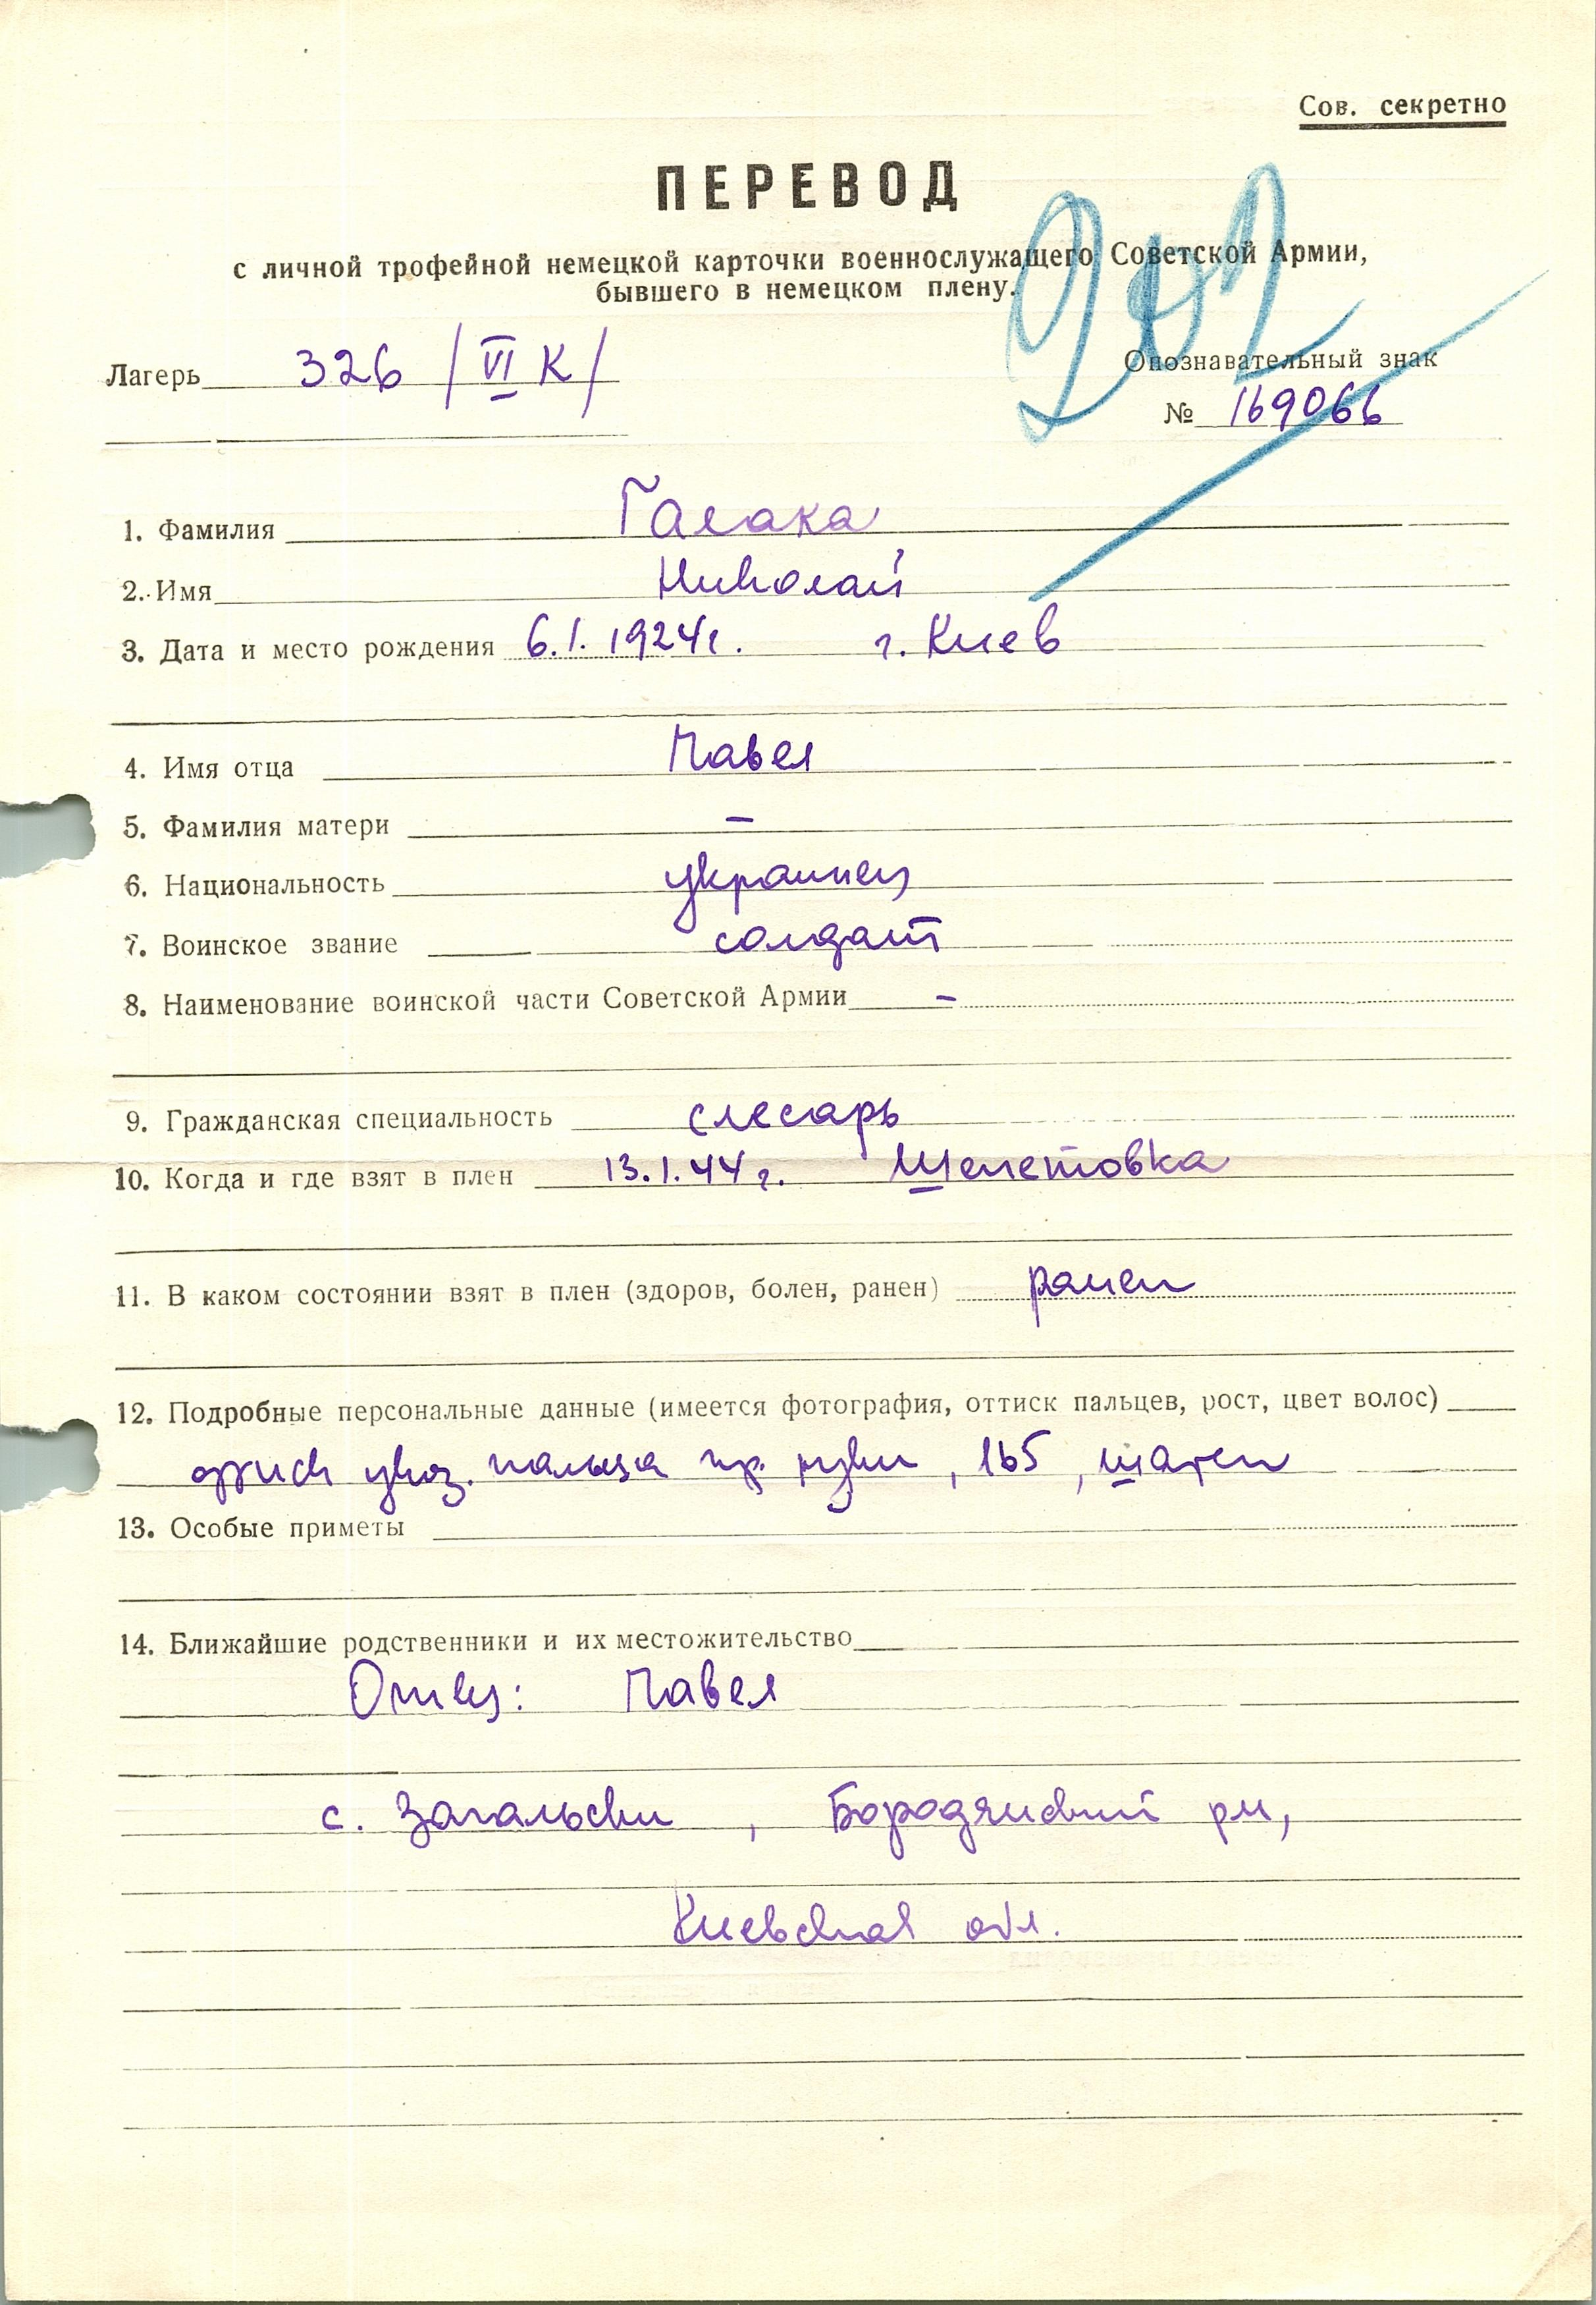 Сов. секретно
ПЕРЕВОД
с личной трофейной немецкой карточки военнослужащего Советской Армии,
бывшего в немецком плену.
Лагерь 326 /VI К/
Опознавательный знак
№ 169066
1. Фамилия Галака
2. Имя Николай
3. Дата и место рождения 6.1.1924г. г. Киев
4. Имя отца Павел
5. Фамилия матери –
6. Национальность украинец
7. Воинское звание солдат
8. Наименование воинской части Советской Армии –
9. Гражданская специальность слесарь
10. Когда и где взят в плен 13.1.44г. Шепетовка
11. В каком состоянии взят в плен (здоров, болен, ранен) ранен
12. Подробные персональные данные (имеется фотография, оттиск пальцев, рост, цвет волос)
оттиск указ. пальца пр. руки, 165, шатен
13. Особые приметы
14. Ближайшие родственники и их местожительство
Отец: Павел
с. Загальски, Бородянский рн,
Киевская обл.